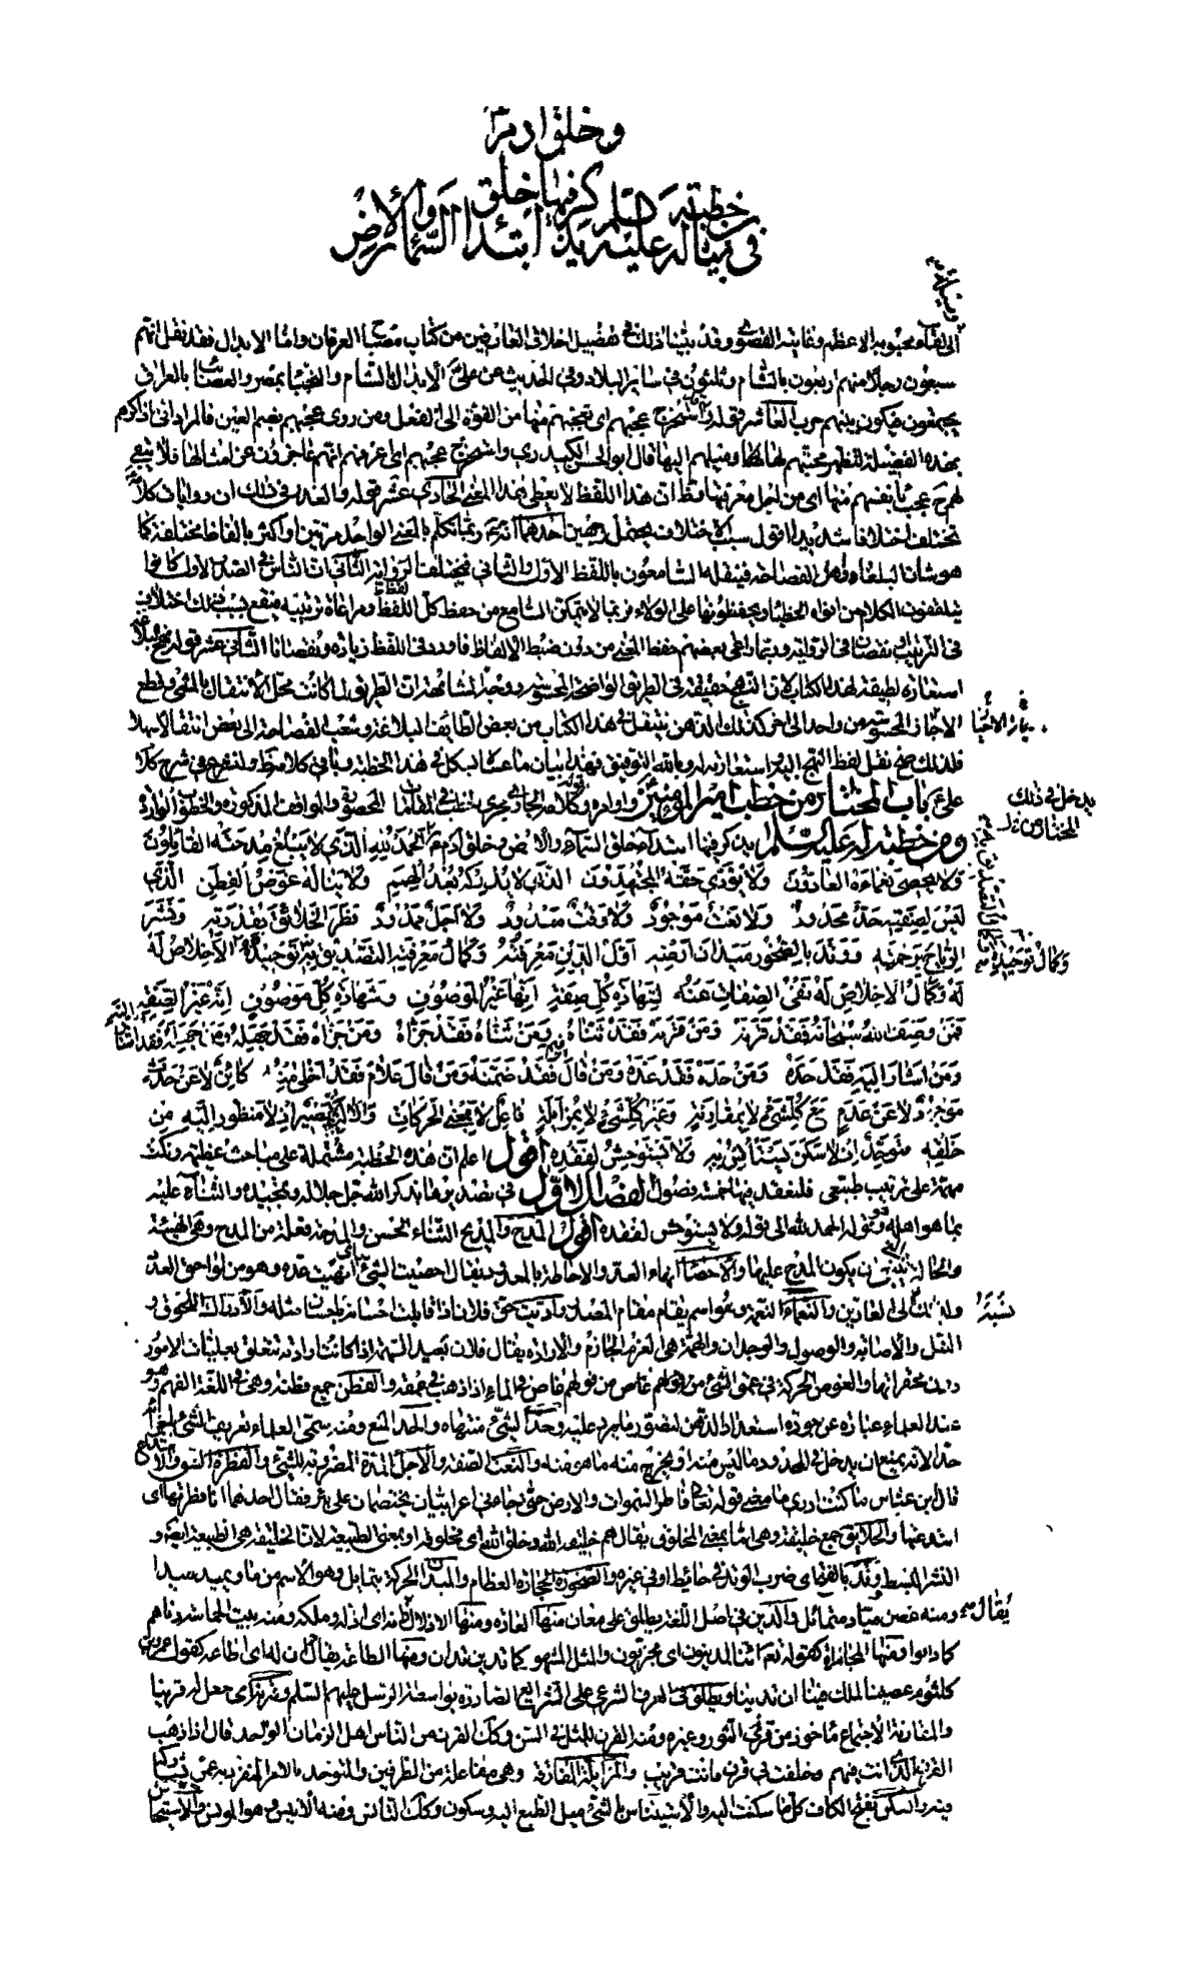 وخلق ادم
خطبته يذكر فيها خلق
في بيان له عليه السلام ابتدا السماء والارض
الى لقاء محبوبه الاعظم وغايته القصوى وقد بينا ذلك في تفصيل اخلاق العارفين من كتاب مصباح العرفان واما الابدال فقد نقل انهم
سبعون رجلا منهم اربعون بالشام وثلثون في ساير البلاد وفي الحديث عن علي الابدال بالشام والنجبا بمصر والعصائب بالعراق
يجتمعون فيكون بينهم حرب العاشر قوله واستخرج عجبهم اى تعجبهم منها من القوة الى الفعل ومن روى عجبهم بضم العين فالمراد انى اذاكرهم
بهذه الفضيلة لتظهر محبتهم لها وميلهم اليها قال ابو الحسن الكيدري واستخرج عجبهم اى اعرفهم انهم عاجزون عن امثالها فلا يبقى
لهم عجب بانفسهم منها اى من اجل معرفتها وظ ان هذا اللفظ لا يعطى هذا المعنى الحادى عشر قوله والعذر في ذلك ان روايات كلامه
تختلف اختلافا شديدا اقول سبب الاختلاف يحتمل وجهين احدهما انه ع ربما تكلم بالمعنى الواحد مرتين او اكثر بالفاظ مختلفة كما
هو شان البلغاء واهل الفصاحة فينقله السامعون باللفظ الاول والثاني فيختلف الرواية الثاني ان الناس في الصدر الاول كانوا
يتلقفون الكلام من افواه الخطباء ويحفظونها على الولاء فربما لا يتمكن السامع من حفظ كل اللفظ ومراعاة ترتيبه فيقع بسبب ذلك اختلاف
في الترتيب او نقصان في الرواية وربما راعى بعضهم حفظ المعنى من دون ضبط الالفاظ فاورد في اللفظ زيادة ونقصانا الثاني عشر قوله نهج البلاغة
استعارة لطيفة لهذا الكتاب لان النهج حقيقة في الطريق الواضحة المحسوسة ووجه المشابهة ان الطريق لما كانت محل الانتقال بالمشي وقطع
الاحياز المحسوسة من واحد الى اخر كذلك الذهن ينتقل في هذا الكتاب من بعض لطايف البلاغة وشعب الفصاحة الى بعض انتقالا سهلا
فلذلك صح نقل لفظ النهج اليه واستعارته له وبالله التوفيق فهذا بيان ما عساه يشكل في هذه الخطبة وباقي كلامه ظ ولنشرع في شرح كلامه
على ع باب المختار من خطب امير المؤمنين واوامره وكلامه الجارى مجرى الخطب في المقامات المحصورة والمواقف المذكورة والخطوب الواردة
ومن خطبة له عليه السلم يذكر فيها ابتداء خلق السماء والارض وخلق ادم ع الحمد لله الذي لا يبلغ مدحته القايلون
ولا يحصى نعماءه العادون ولا يؤدى حقه المجتهدون الذي لا يدركه بعد الهمم ولا يناله غوص الفطن الذي
ليس لصفته حد محدود ولا نعت موجود ولا وقت معدود ولا اجل ممدود فطر الخلائق بقدرته ونشر
الرياح برحمته ووتد بالصخور ميدان ارضه اول الدين معرفته وكمال معرفته التصديق به توحيده الاخلاص له
له وكمال الاخلاص له نفى الصفات عنه لشهادة كل صفة انها غير الموصوف وشهادة كل موصوف انه غير الصفة
فمن وصف الله سبحانه فقد قرنه ومن قرنه فقد ثناه ومن ثناه فقد جزاه ومن جزاه فقد جهله ومن جهله فقد اشار اليه
ومن اشار اليه فقد حده ومن حده فقد عده ومن قال فيم فقد ضمنه ومن قال علام فقد اخلى منه كائن لا عن حدث
موجود لا عن عدم مع كل شيء لا بمقارنة وغير كل شيء لا بمزايلة فاعل لا بمعنى الحركات والالة بصير اذ لا منظور اليه من
خلقه متوحد اذ لا سكن يستانس به ولا يستوحش لفقده اقول اعلم ان هذه الخطبة مشتملة على مباحث عظيمة ونكت
مهمة على ترتيب طبيعى فلنعقد فيها خمسة فصول الفصل الاول في تصديرها بذكر الله جل جلاله وتمجيده والثناء عليه
بما هو اهله وهو قوله الحمد لله الى قوله ولا يستوحش لفقده اقول المدح والمديح الثناء الحسن والمدحة فعلة من المدح وهى الهيئة
والحالة التى يكون المدح عليها والاحصاء انهاء العد والاحاطة بالمعدود يقال احصيت الشئ اى انهيت عده وهو من لواحق العد
ولذلك نسبه الى العادين والنعماء النعمة وهو اسم يقام مقام المصدر واديت حق فلان اذا قابلت احسانه باحسان مثله والادراك اللحوق و
النيل والاصابة والوصول والوجدان والهمة هى العزم الجازم والارادة يقال فلان بعيد الهمة اذا كانت ارادته تتعلق بعليات الامور
دون محقراتها والغوص الحركة في عمق الشئ من قولهم غاص في الماء اذا ذهب في عمقه والفطن جمع فطنة وهى في اللغة الفهم وهو
عند العلماء عبارة عن جودة استعداد الذهن لتصور ما يرد عليه وحد الشئ منتهاه والحد المنع ومنه سمى العلماء تعريف الشئ باجزائه
حدا لانه يمنع ان يدخل في المحدود ما ليس منه او يخرج منه ما هو منه والنعت الصفة والاجل المدة المضروبة للشئ والفطرة الشق والابتداع
قال ابن عباس ما كنت ادرى ما معنى قوله تعالى فاطر السموات والارض حتى جاءنى اعرابيان يختصمان على بئر فقال احدهما انا فطرتها اى
ابتدعتها والخلايق جمع خليقة وهى اما بمعنى المخلوق يقال هم خليقة الله وخلق الله اى مخلوقه او بمعنى الطبيعة لان الخليقة هى الطبيعة ايضا و
النشر البسط ووتد بالفتح اى ضرب الوتد في حائط او في غيره والصخور الحجارة العظام والميدان الحركة بتمايل وهو الاسم من ماد يميد ميدا
ومنه غصن مياد متمائل والدين في اصل اللغة يطلق على معان منها العادة ومنها الاذلال يقال دانه اى اذله وملكه ومنه بيت الحماسة دناهم
كما دانوا ومنها المجازاة كقوله تعالى ائنا لمدينون اى مجزيون والمثل المشهور كما تدين تدان ومنها الطاعة يقال دان له اى اطاعه كقول عمرو بن
كلثوم عصينا الملك فينا ان ندينا ويطلق في العرف الشرعى على الشرايع الصادرة بواسطة الرسل عليهم السلم وقرنه اى جعل له قرينا
والمقارنة الاجتماع مأخوذ من قرن الثور وغيره ومنه القرن للمثل في السن وكذلك القرن من الناس اهل الزمان الواحد قال اذا ذهب
القرن الذى انت فيهم وخلفت في قرن فانت غريب والمزايلة المفارقة وهى مفاعلة من الطرفين والمتوحد بالامر المنفرد به عمن يشاركه
فيه والسكن بفتح الكاف كل ما سكنت اليه والاستيناس بالشئ ميل الطبع اليه وسكونه وكذلك التانس ومنه الانيس وهو المونس والاستيحاش
يدخل في ذلك
المختار من
وكمال توحيده
نسبة
يقال